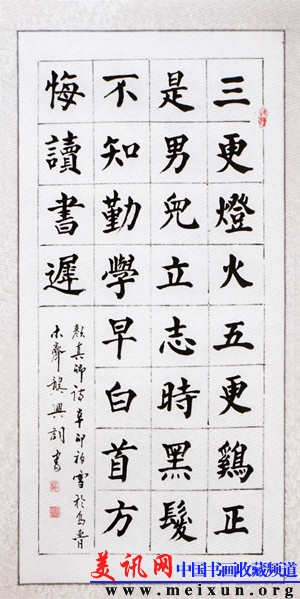 三更燈火五更鷄正
是男兒立志時黑髮
不知勤學早白首方
悔讀書遲
顏真卿詩辛卯初雪於烏魯
木齊龔興書
美讯网 中国书画收藏频道
www.meixun.org